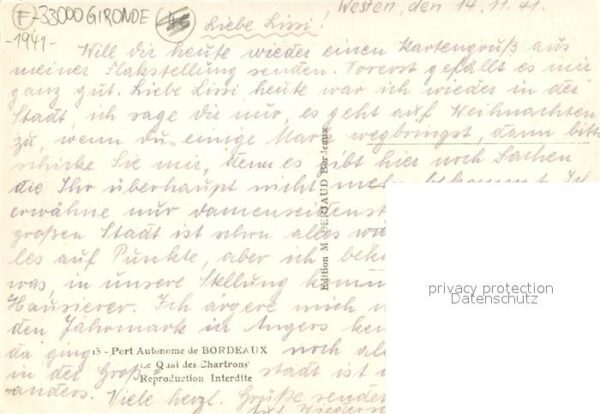 F-33000 GIRONDE
-1941-
Westen, den 14.11.41.
Liebe Lissi!
Will dir heute wieder einen Kartengruß aus
meiner Flakstellung senden. Vorerst gefällt es mir
ganz gut. Liebe Lissi heute war ich wieder in der
Stadt, ich sage dir nur, es geht auf Weihnachten
zu, wenn du einige Mark wegbringst, dann bitte
schicke Sie mir, denn es gibt hier noch Sachen
die Ihr überhaupt nicht mehr bekommt. Ich
erwähne nur damenseidenst
großen Stadt ist schon alles
les auf Punkte, aber ich bek
was, in unsere Stellung komm
Hausierer. Ich ärgere mich
den Jahrmarkt in Angers
da ging noch
in der Groß stadt ist
anders. Viele herzl. Grüße senden
auf Wiederse
15 - Port Autonome de BORDEAUX
Le Quai des Chartrons
Reproduction Interdite
Edition M Bordeaux
privacy protection
Datenschutz